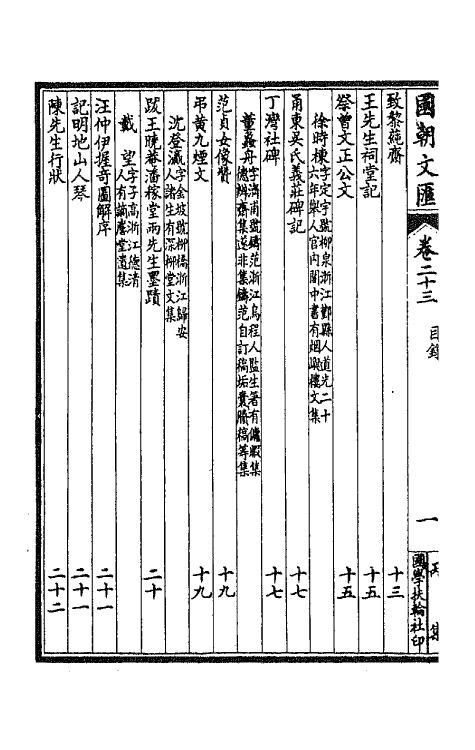 國朝文匯 卷二十三 目錄 一 丙集
國學扶輪社印
致黎蒓齋 十三
王先生祠堂記 十五
祭曾文正公文 十五
徐時棟 字定宇號柳泉浙江鄞縣人道光二十
六年舉人官內閣中書有烟嶼樓文集
甬東吳氏義莊碑記 十七
丁灣社碑 十七
董蠡舟 字濟甫號鑄范浙江烏程人監生著有傭暇集
德辨齋集遂非集鑄范自訂稿垢囊賸稿等集
范貞女像贊 十九
弔黃九煙文 十九
沈登瀛 字金坡號柳橋浙江歸安
人諸生有深柳堂文集
跋王曉菴潘稼堂兩先生墨蹟 二十
戴望 字子高浙江德清
人有謫麐堂遺集
汪仲伊握奇圖解序 二十一
記明地山人琴 二十一
陳先生行狀 二十二